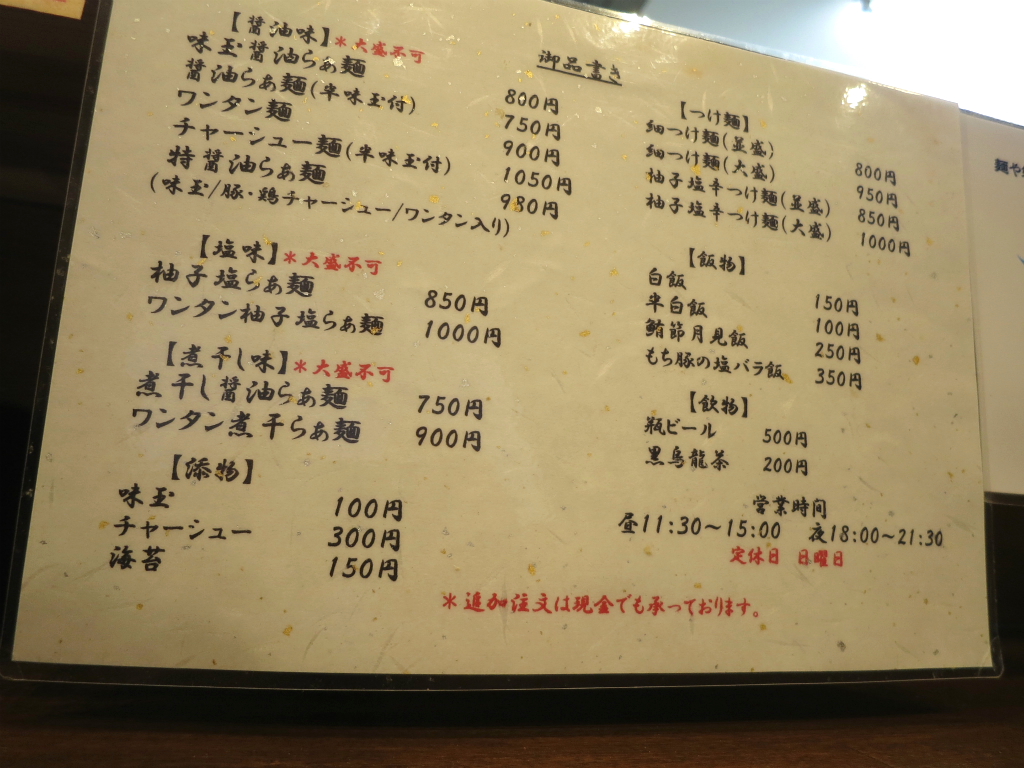 御品書き
【醤油味】＊大盛不可
味玉醤油らぁ麺 800円
醤油らぁ麺(半味玉付) 750円
ワンタン麺 900円
チャーシュー麺(半味玉付) 1050円
特醤油らぁ麺 980円
(味玉/豚・鶏チャーシュー/ワンタン入り)
【塩味】＊大盛不可
柚子塩らぁ麺 850円
ワンタン柚子塩らぁ麺 1000円
【煮干し味】＊大盛不可
煮干し醤油らぁ麺 750円
ワンタン煮干らぁ麺 900円
【添物】
味玉 100円
チャーシュー 300円
海苔 150円
【つけ麺】
細つけ麺(並盛) 800円
細つけ麺(大盛) 950円
柚子塩辛つけ麺(並盛) 850円
柚子塩辛つけ麺(大盛) 1000円
【飯物】
白飯 150円
半白飯 100円
鮪節月見飯 250円
もち豚の塩バラ飯 350円
【飲物】
瓶ビール 500円
黒烏龍茶 200円
営業時間
昼11:30～15:00 夜18:00～21:30
定休日 日曜日
＊追加注文は現金でも承っております。
麺や